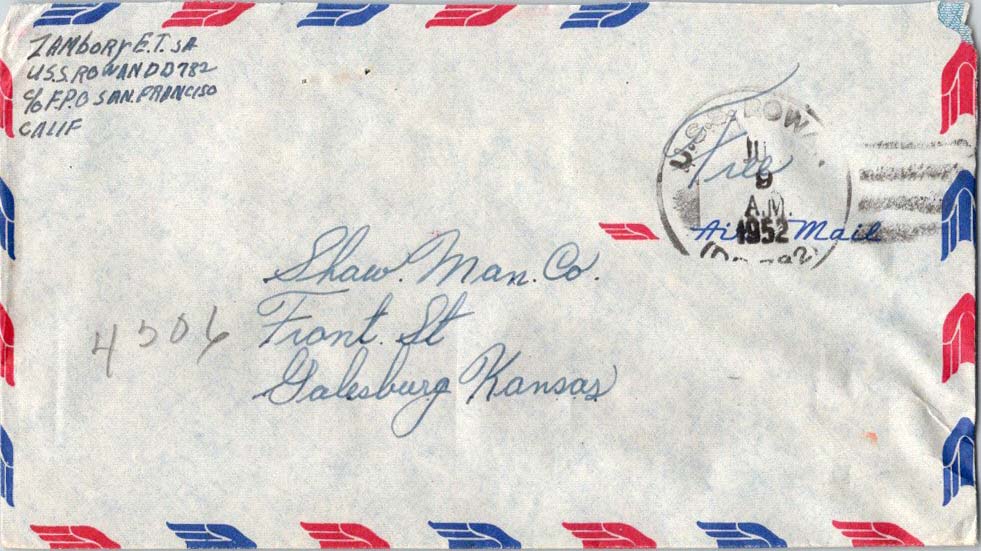 ZAMBORY E.T. SA
U.S.S. ROWAN DD782
c/o F.P.O SAN. FRANCISO
CALIF
U.S.S. ROWAN
Free
9
A.M.
1952
Air Mail
Shaw. Man. Co.
Front. St
Galesburg Kansas
4506